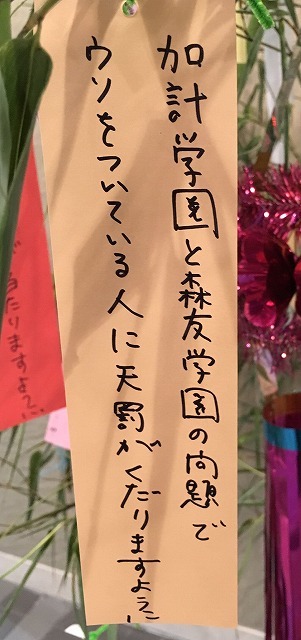 加計学園と森友学園の問題で
ウソをついている人に天罰がくだりますように
当たりますように